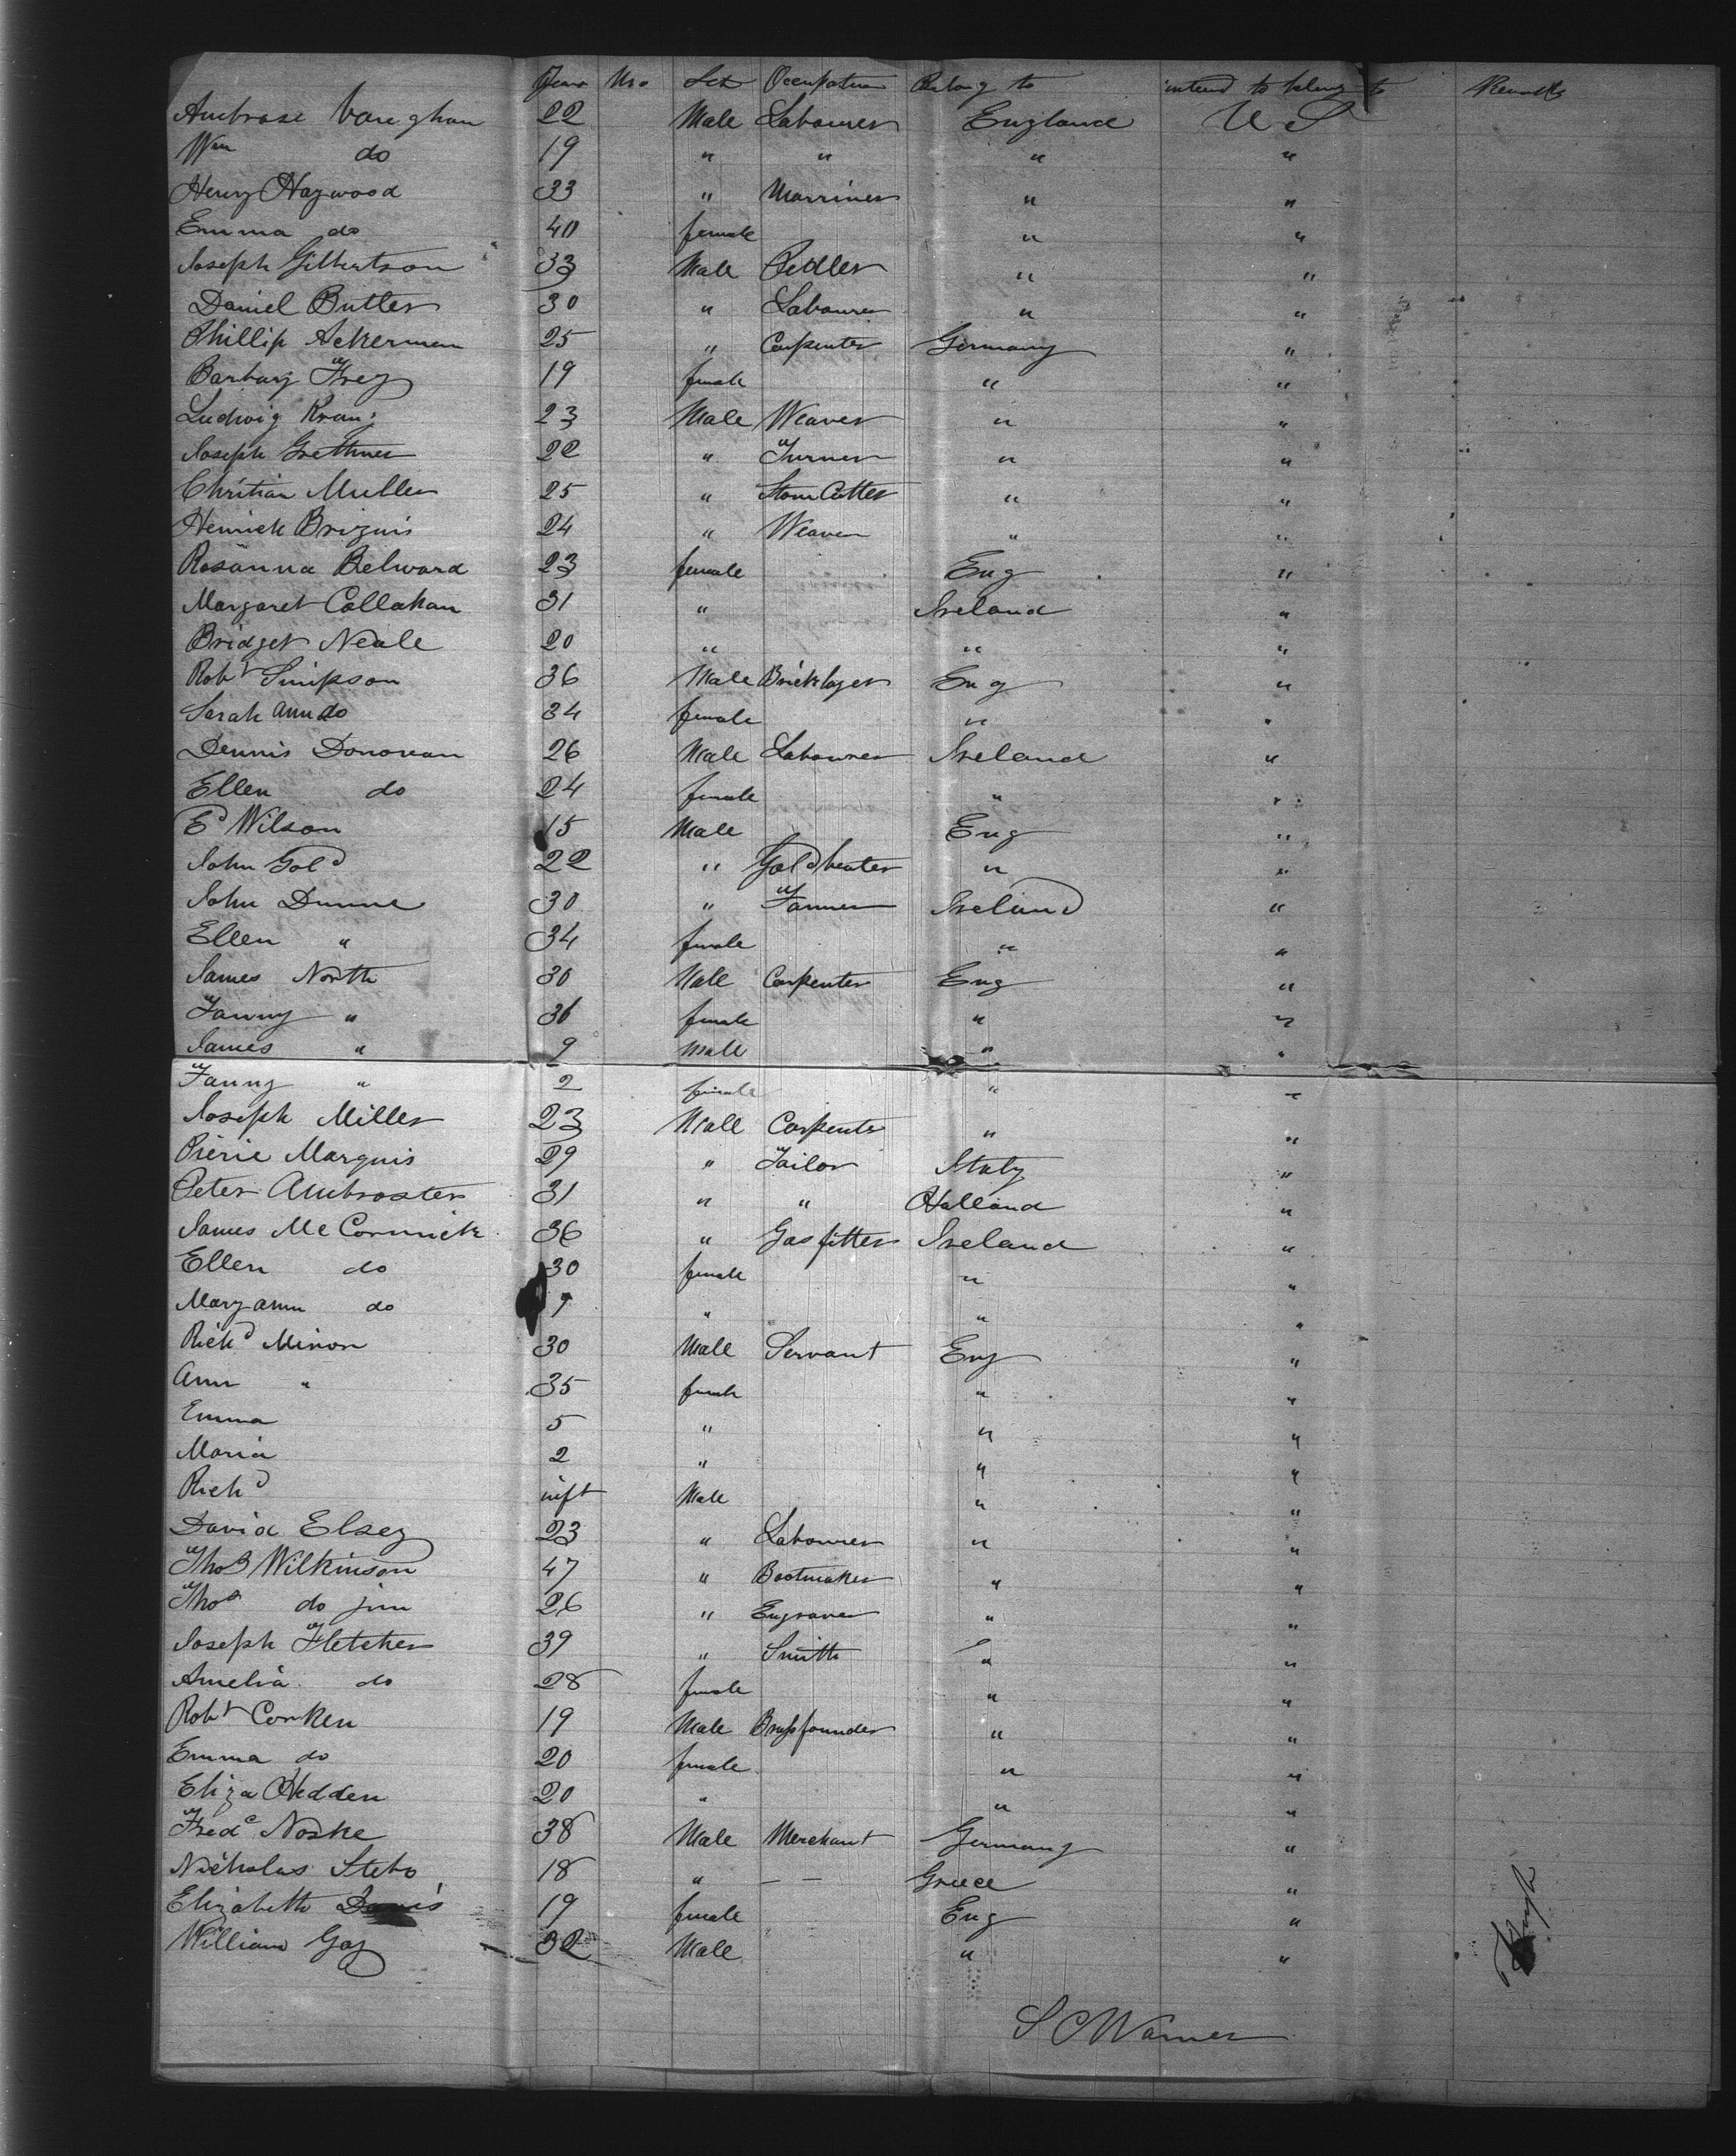 Years Mo Sex Occupation Belong to intend to belong to Remarks
Ambrose Vaughan 22 Male Labourer England U S
Wm do 19 " " " "
Henry Haywood 33 " Marriner " "
Emma do 40 female " "
Joseph Gilbertson 33 Male Pedler " "
Daniel Butler 30 " Labourer " "
Phillip Ackerman 25 " Carpenter Germany "
Barbary Frey 19 female " "
Ludwig 23 Male Weaver " "
Joseph Grethner 22 " Turner " "
Chritian Muller 25 " Stone Cutter " "
Henrick 24 " Weaver " "
Rosanna Belward 23 female Eng "
Margaret Callahan 31 " Ireland "
Bridget Neale 20 " " "
Robt Simpson 36 Male Bricklayer Eng "
Sarah Ann do 34 female " "
Dennis Donovan 26 Male Labourer Ireland "
Ellen do 24 female " "
Ed Wilson 15 Male Eng "
John Gold 22 " Goldbeater " "
John Dunne 30 " Ireland "
Ellen " 34 female " "
James North 30 Male Carpenter Eng "
Fanny " 36 female " "
James " 9 Male " "
Fanny " 2 female " "
Joseph Miller 23 Male Carpenter " "
Pierie Marquis 29 " Tailor Italy "
Peter Ambroster 31 " " Holland "
James McCormick 36 " Gasfitter Ireland "
Ellen do 30 female " "
Mary ann do 7 " " "
Richd Minon 30 Male Servant Eng "
Ann " 35 female " "
Emma 5 " " "
Maria 2 " " "
Richd inft Male " "
David Elsey 23 " Labourer " "
Thos Wilkinson 47 " Bootmaker " "
Thos do jun 26 " Engraver " "
Joseph Fletcher 39 " Smith " "
Amelia do 28 female " "
Robt Corken 19 Male Brassfounder " "
Emma do 20 female " "
Eliza Hedden 20 " " "
Fredc Noske 38 Male Merchant Germany "
Nicholas Stebo 18 " — — Greece "
Elizabeth Davis 19 female Eng "
William Gay 32 Male " "
S C Warner